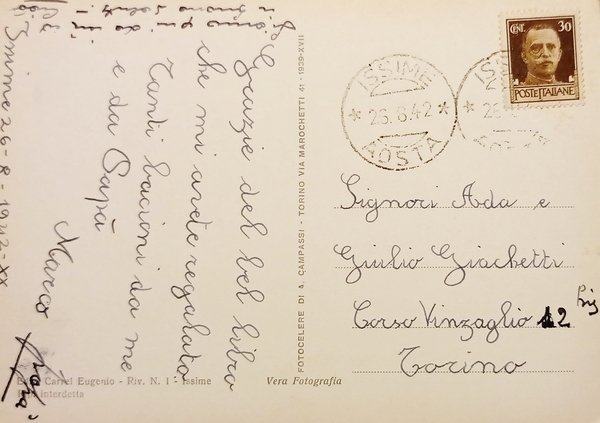 Issime 26-8-1942-XX
Grazie del bel libro
che mi avete regalato
Tanti bacioni da me
e da Papà
Marco
CENT. 30
POSTE ITALIANE
ISSIME
* 26.8.42 *
AOSTA
ISSIME
Signori Ada e
Giulio Giachetti
Corso Vinzaglio 12 bis
Torino
FOTOCELERE DI A. CAMPASSI - TORINO VIA MAROCHETTI 41 - 1939-XVII
Carrel Eugenio - Riv. N. 1 - Issime
interdetta
Vera Fotografia